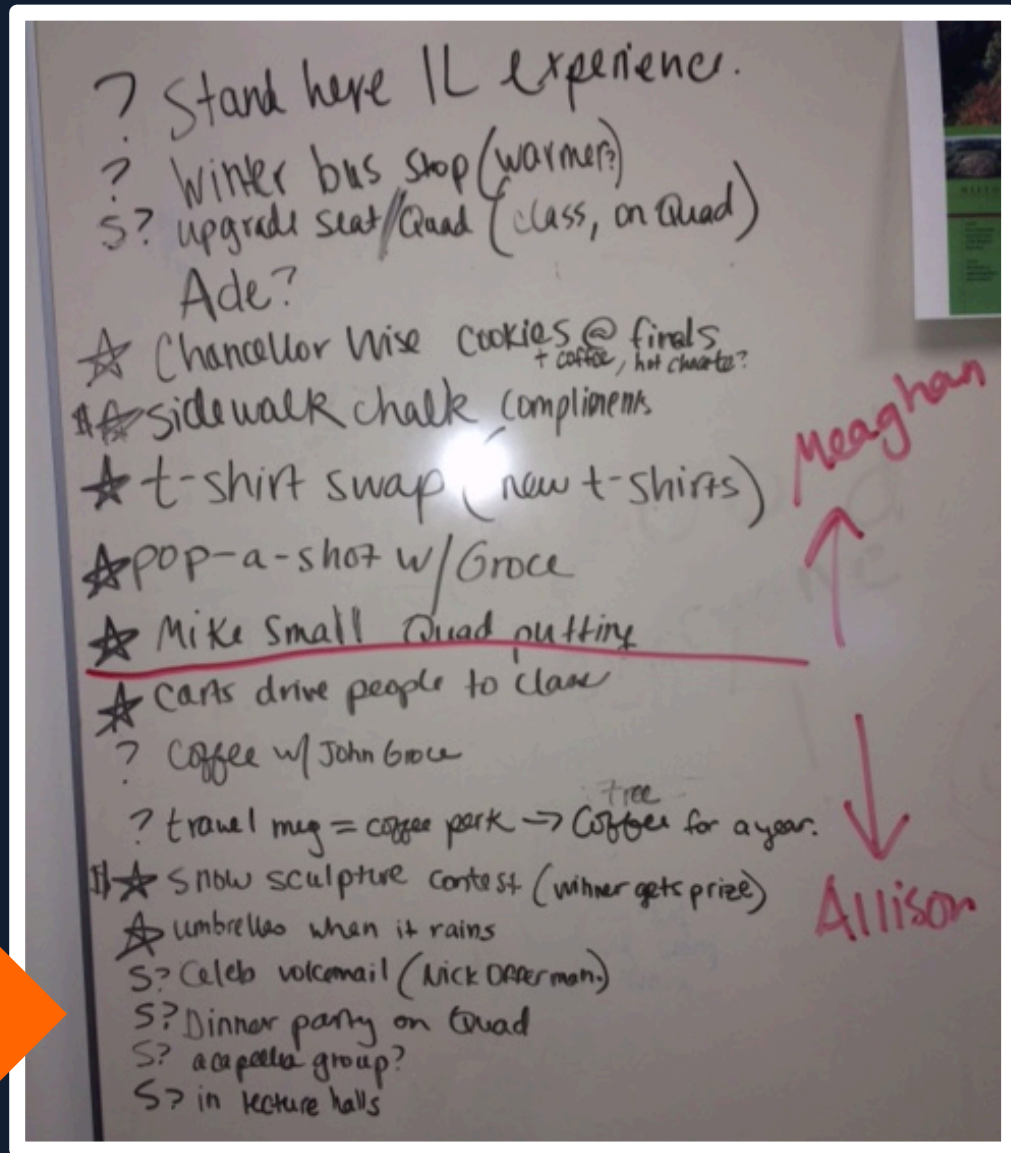 ? Stand here IL experience.
? Winter bus stop (warmer?)
S? upgrade seat//Quad (class, on Quad)
Ade?
☆ Chancellor Wise Cookies @ finals
+ coffee, hot
$☆ sidewalk chalk compliments
☆ t-shirt swap (new t-shirts)
☆ pop-a-shot w/Groce
☆ Mike Small Quad putting
Meaghan
☆ carts drive people to class
? Coffee w/ John Groce
free
? travel mug = coffee perk → Coffee for a year.
$☆ snow sculpture contest (winner gets prize)
☆ umbrellas when it rains
S? Celeb voicemail (Nick Offerman.)
S? Dinner party on Quad
S? acapella group?
S? in lecture halls
Allison